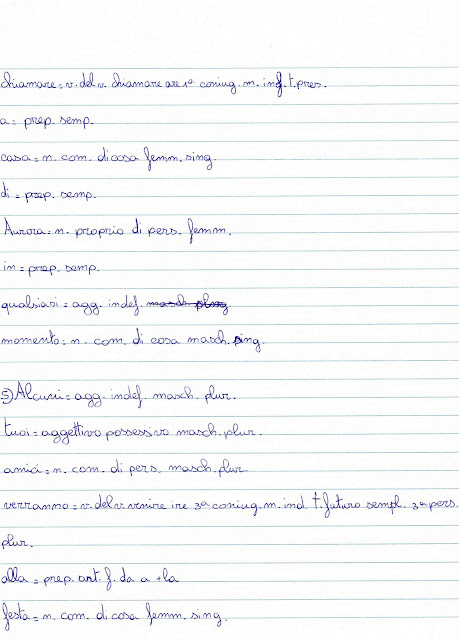 chiamare = v. del v. chiamare are 1ª coniug. m. inf. t. pres.
a = prep. semp.
casa = n. com. di cosa femm. sing.
di = prep. semp.
Aurora = n. proprio di pers. femm.
in = prep. semp.
qualsiasi = agg. indef. masch. plurg
momento = n. com. di cosa masch. sing.
5) Alcuni = agg. indef. masch. plur.
tuoi = aggettivo possessivo masch. plur.
amici = n. com. di pers. masch. plur.
verranno = v. del v. venire ire 3ª coniug. m. ind. t. futuro sempl. 3ª pers.
plur.
alla = prep. art. f. da a + la
festa = n. com. di cosa femm. sing.